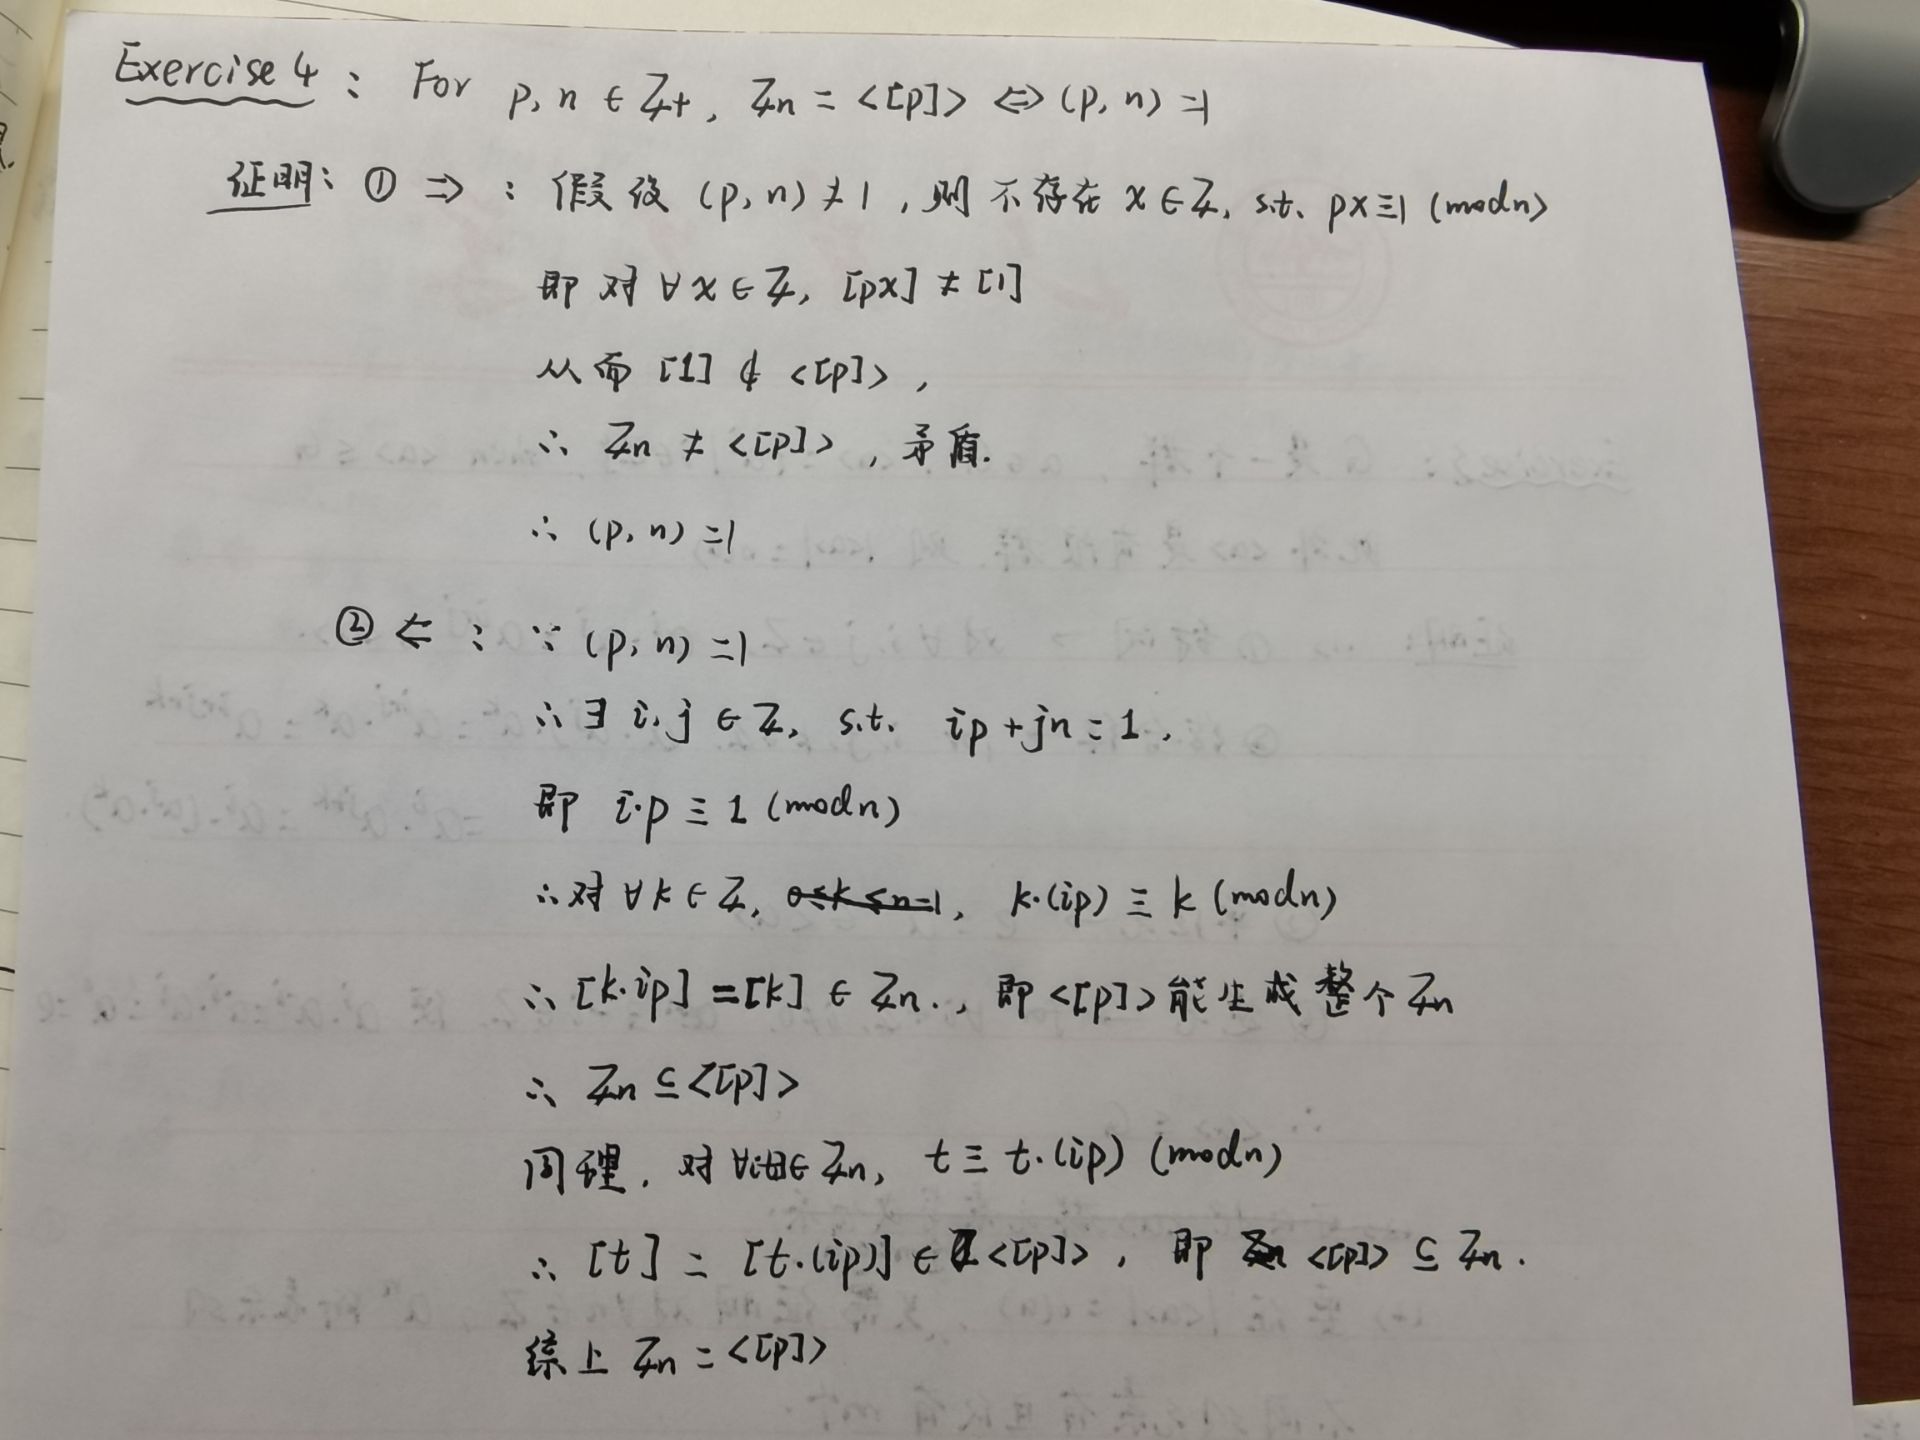 Exercise 4: For p, n ∈ Z+, Zn = <[p]> ⇔ (p, n) = 1
证明: ① ⇒ : 假设 (p, n) ≠ 1, 则不存在 x ∈ Z, s.t. px ≡ 1 (mod n)
即对 ∀x ∈ Z, [px] ≠ [1]
从而 [1] ∉ <[p]>,
∴ Zn ≠ <[p]>, 矛盾.
∴ (p, n) = 1
② ⇐ : ∵ (p, n) = 1
∴ ∃ i, j ∈ Z, s.t. ip + jn = 1,
即 i·p ≡ 1 (mod n)
∴ 对 ∀k ∈ Z, 0≤k≤n-1, k·(ip) ≡ k (mod n)
∴ [k·ip] = [k] ∈ Zn., 即 <[p]> 能生成整个 Zn
∴ Zn ⊆ <[p]>
同理, 对 ∀[t] ∈ Zn, t ≡ t·(ip) (mod n)
∴ [t] = [t·(ip)] ∈ <[p]>, 即 <[p]> ⊆ Zn.
综上 Zn = <[p]>